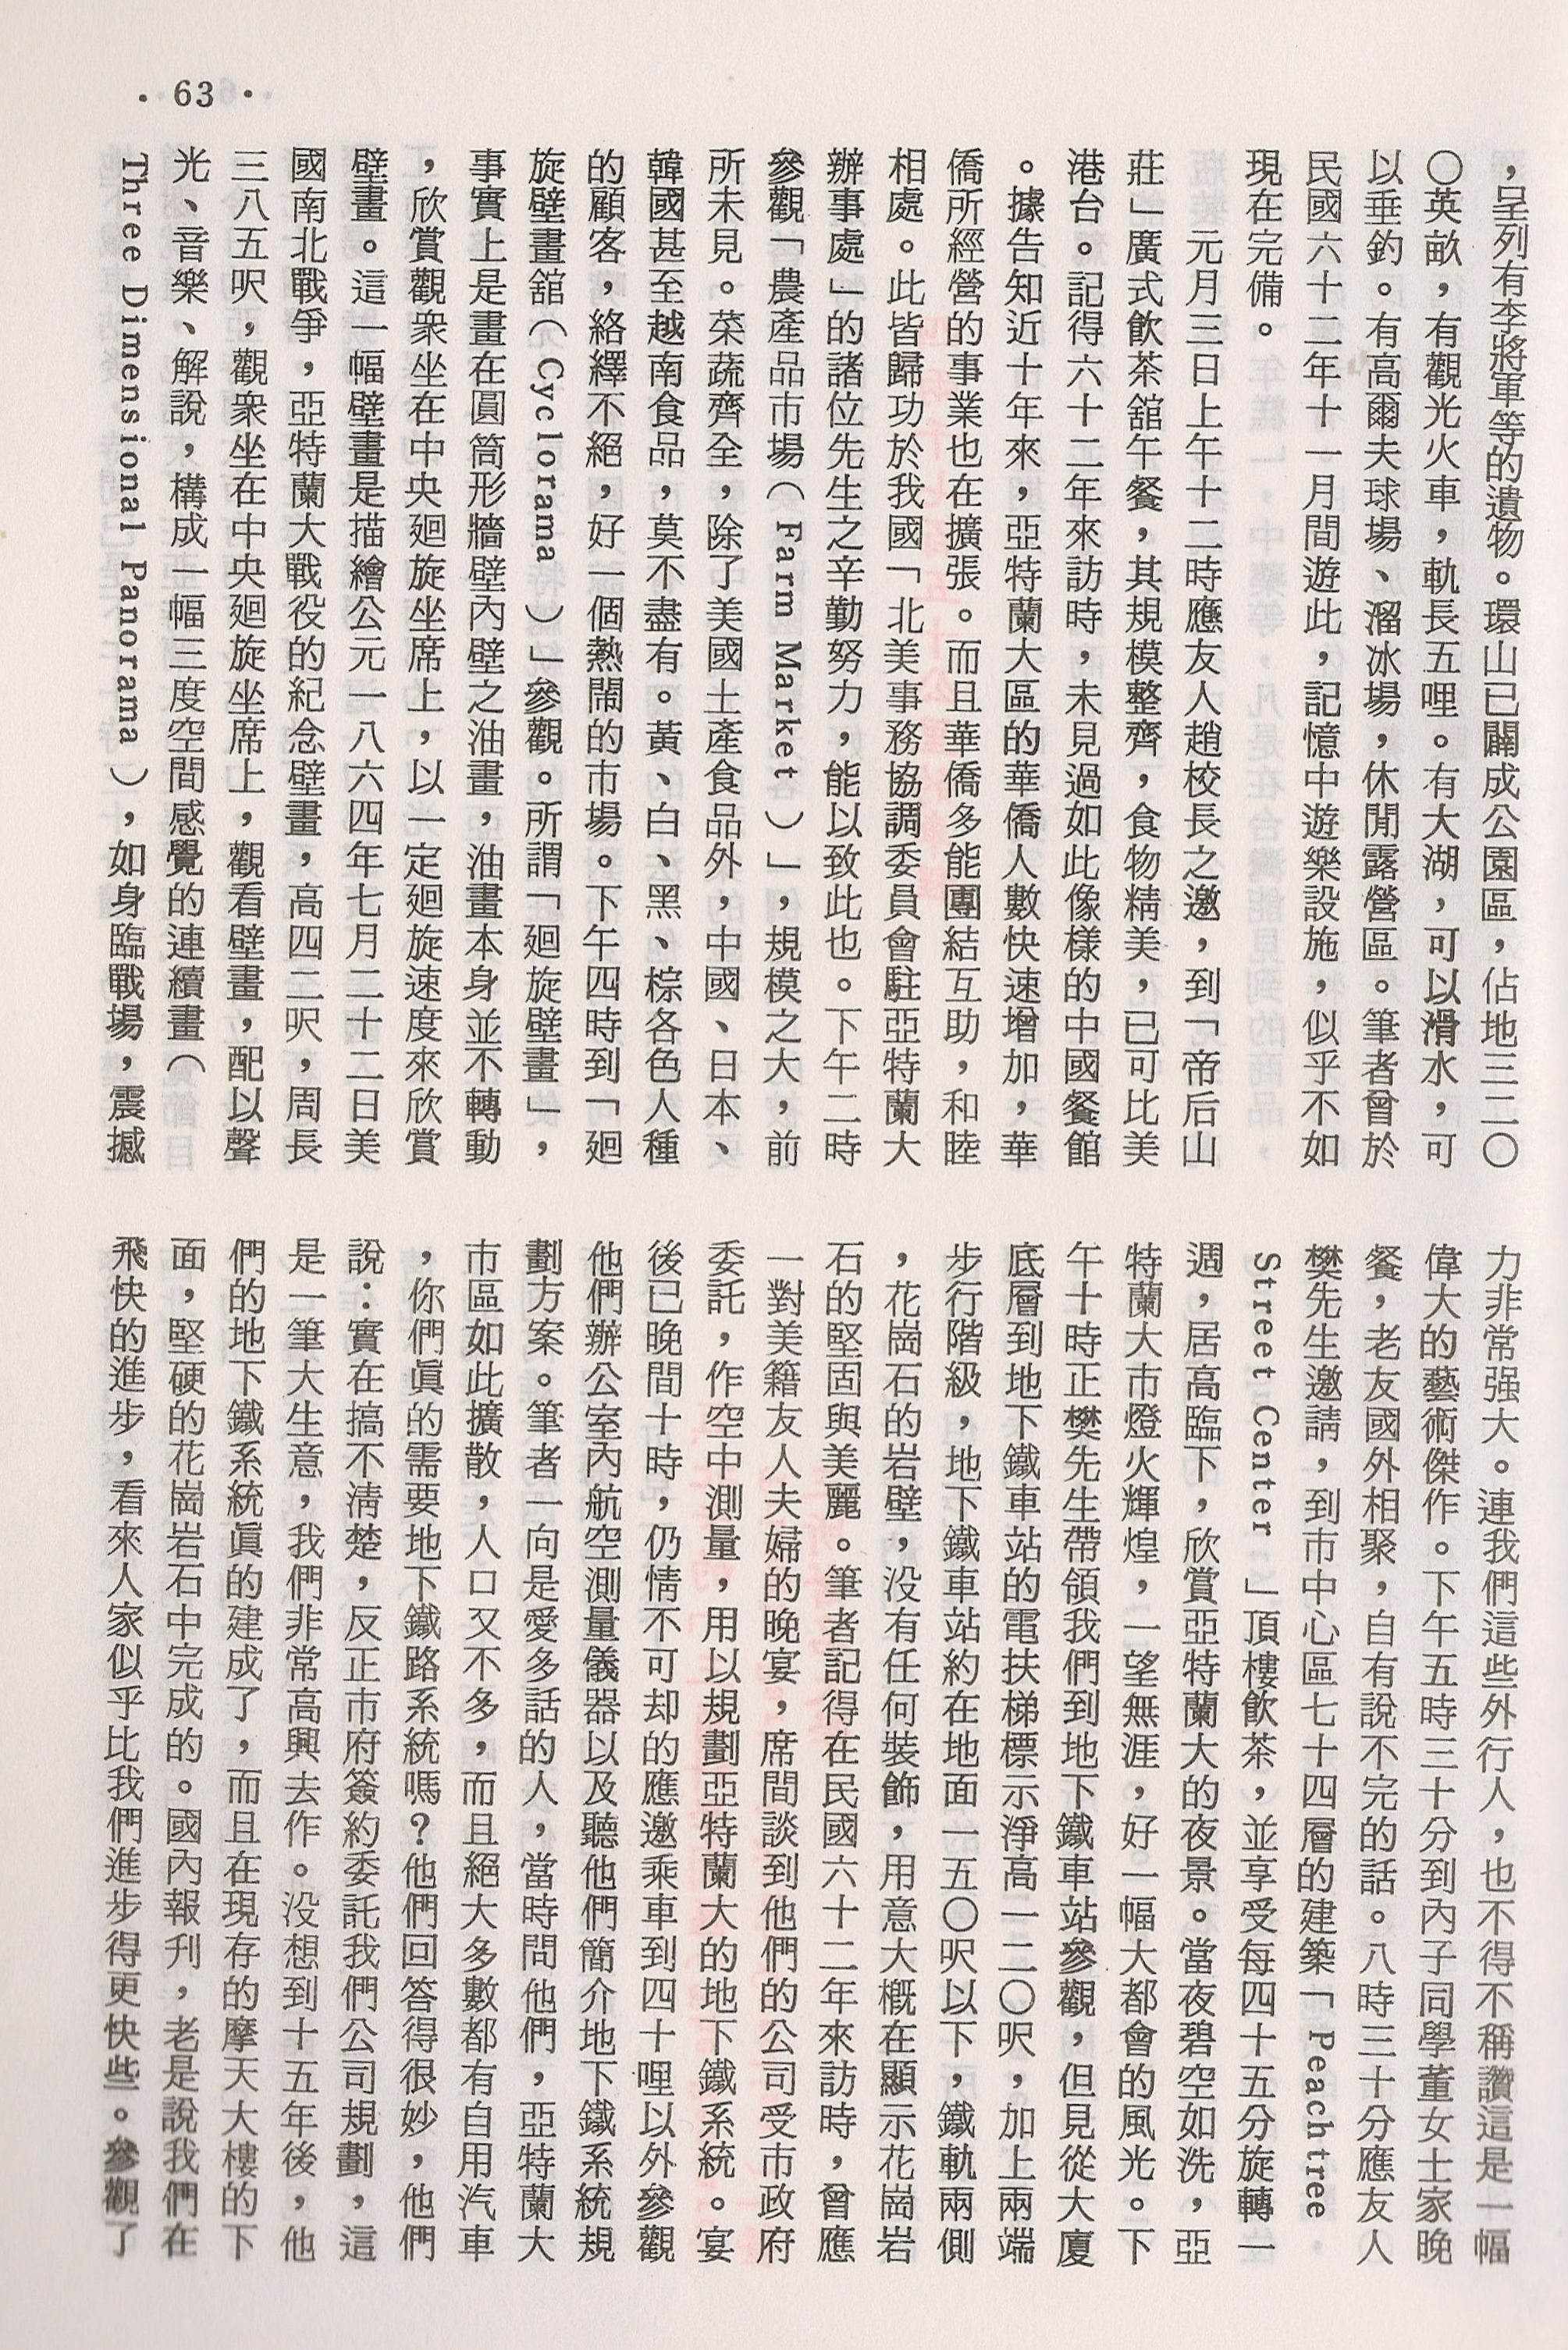 ·63·
，呈列有李將軍等的遺物。環山已闢成公園區，佔地三二〇
〇英畝，有觀光火車，軌長五哩。有大湖，可以滑水，可
以垂釣。有高爾夫球場、溜冰場，休閒露營區。筆者曾於
民國六十二年十一月間遊此，記憶中遊樂設施，似乎不如
現在完備。
元月三日上午十二時應友人趙校長之邀，到「帝后山
莊」廣式飲茶舘午餐，其規模整齊，食物精美，已可比美
港台。記得六十二年來訪時，未見過如此像樣的中國餐館
。據告知近十年來，亞特蘭大區的華僑人數快速增加，華
僑所經營的事業也在擴張。而且華僑多能團結互助，和睦
相處。此皆歸功於我國「北美事務協調委員會駐亞特蘭大
辦事處」的諸位先生之辛勤努力，能以致此也。下午二時
參觀「農產品市場（Farm Market）」，規模之大，前
所未見。菜蔬齊全，除了美國土產食品外，中國、日本、
韓國甚至越南食品，莫不盡有。黃、白、黑、棕各色人種
的顧客，絡繹不絕，好一個熱鬧的市場。下午四時到「廻
旋壁畫舘（Cyclorama）」參觀。所謂「廻旋壁畫」，
事實上是畫在圓筒形牆壁內壁之油畫，油畫本身並不轉動
，欣賞觀衆坐在中央廻旋坐席上，以一定廻旋速度來欣賞
壁畫。這一幅壁畫是描繪公元一八六四年七月二十二日美
國南北戰爭，亞特蘭大戰役的紀念壁畫，高四二呎，周長
三八五呎，觀衆坐在中央廻旋坐席上，觀看壁畫，配以聲
光、音樂、解說，構成一幅三度空間感覺的連續畫（
Three Dimensional Panorama），如身臨戰場，震撼
力非常强大。連我們這些外行人，也不得不稱讚這是一幅
偉大的藝術傑作。下午五時三十分到內子同學董女士家晚
餐，老友國外相聚，自有說不完的話。八時三十分應友人
樊先生邀請，到市中心區七十四層的建築「Peachtree
Street Center」頂樓飲茶，並享受每四十五分旋轉一
週，居高臨下，欣賞亞特蘭大的夜景。當夜碧空如洗，亞
特蘭大市燈火輝煌，一望無涯，好一幅大都會的風光。下
午十時正樊先生帶領我們到地下鐵車站參觀，但見從大廈
底層到地下鐵車站的電扶梯標示淨高一二〇呎，加上兩端
步行階級，地下鐵車站約在地面一五〇呎以下，鐵軌兩側
，花崗石的岩壁，没有任何裝飾，用意大概在顯示花崗岩
石的堅固與美麗。筆者記得在民國六十二年來訪時，曾應
一對美籍友人夫婦的晚宴，席間談到他們的公司受市政府
委託，作空中測量，用以規劃亞特蘭大的地下鐵系統。宴
後已晚間十時，仍情不可却的應邀乘車到四十哩以外參觀
他們辦公室內航空測量儀器以及聽他們簡介地下鐵系統規
劃方案。筆者一向是愛多話的人，當時問他們，亞特蘭大
市區如此擴散，人口又不多，而且絕大多數都有自用汽車
，你們眞的需要地下鐵路系統嗎？他們回答得很妙，他們
說：實在搞不淸楚，反正市府簽約委託我們公司規劃，這
是一筆大生意，我們非常高興去作。没想到十五年後，他
們的地下鐵系統眞的建成了，而且在現存的摩天大樓的下
面，堅硬的花崗岩石中完成的。國內報刋，老是說我們在
飛快的進步，看來人家似乎比我們進步得更快些。參觀了